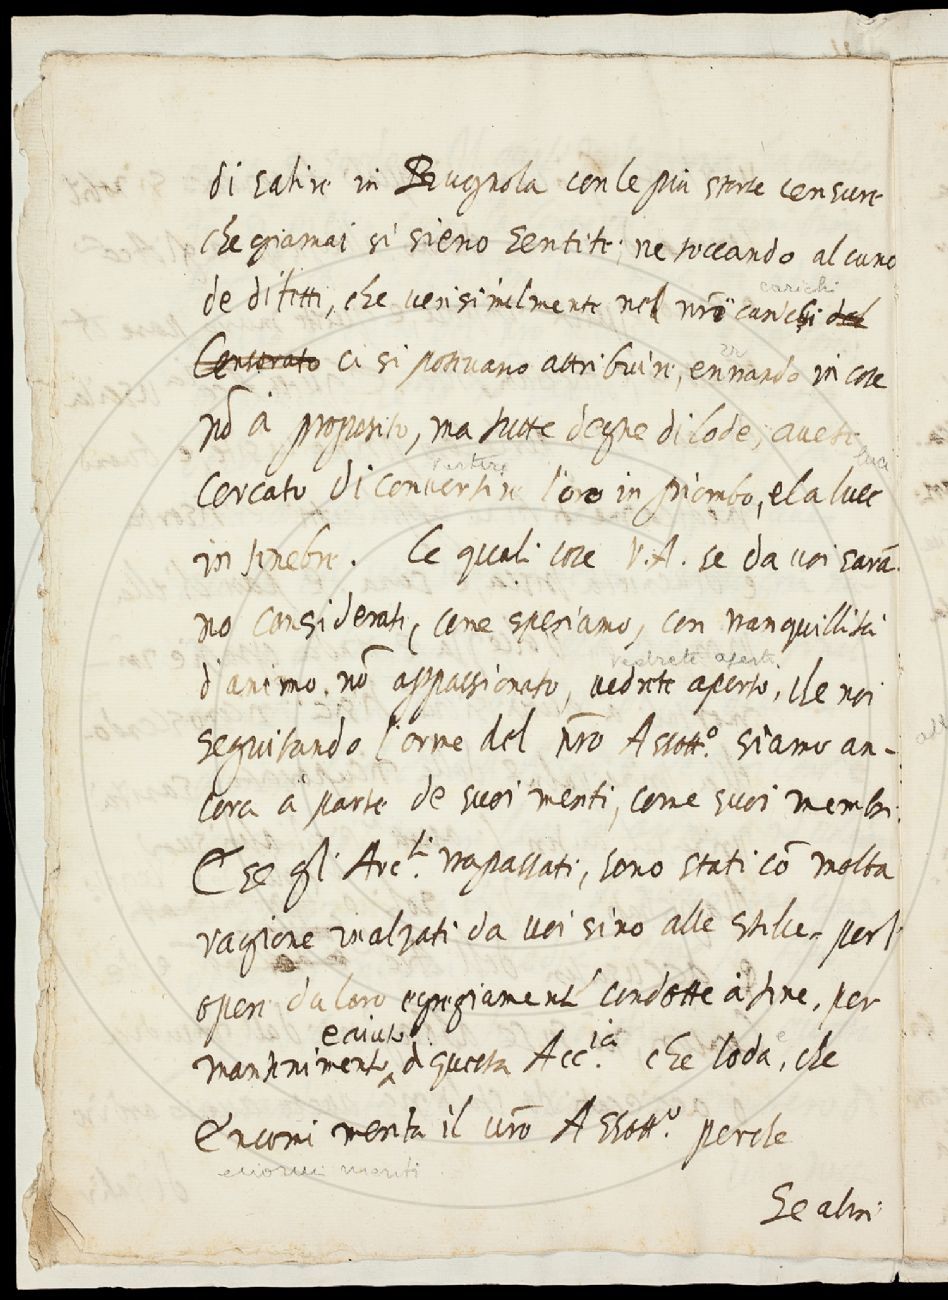 di salire in Bugnola con le più storte censure
che giamai si sieno sentite; ne toccando alcuno
de difetti, che verisimilmente nel nr̃o carichi
carichi del
Censurato ci si potevano attribuire, entrando in cose
nõ à proposito, ma tutte degne di lode, avete
cercato di convertire l'oro in piombo, e la luce
vertire
luce
in tenebre. Le quali cose V.A. se da voi sarã
no considerate, come speriamo, con tranquillità
d'animo nõ appassionato, vedrete aperto, che noi
vedrete aperto
seguitando l'orme del nr̃o Assott.o siamo an-
cora à parte de suoi meriti, come suoi membri.
E se gli Arc.li trapassati, sono stati cõ molta
ragione inalzati da voi sino alle stelle per l'
opere da loro egregiamente condotte à fine, per
e aiuto
mantenimento di questa Acc.ia che loda, che
Encomi merita il vr̃o Assott.o perche
encomi meriti
Se altri